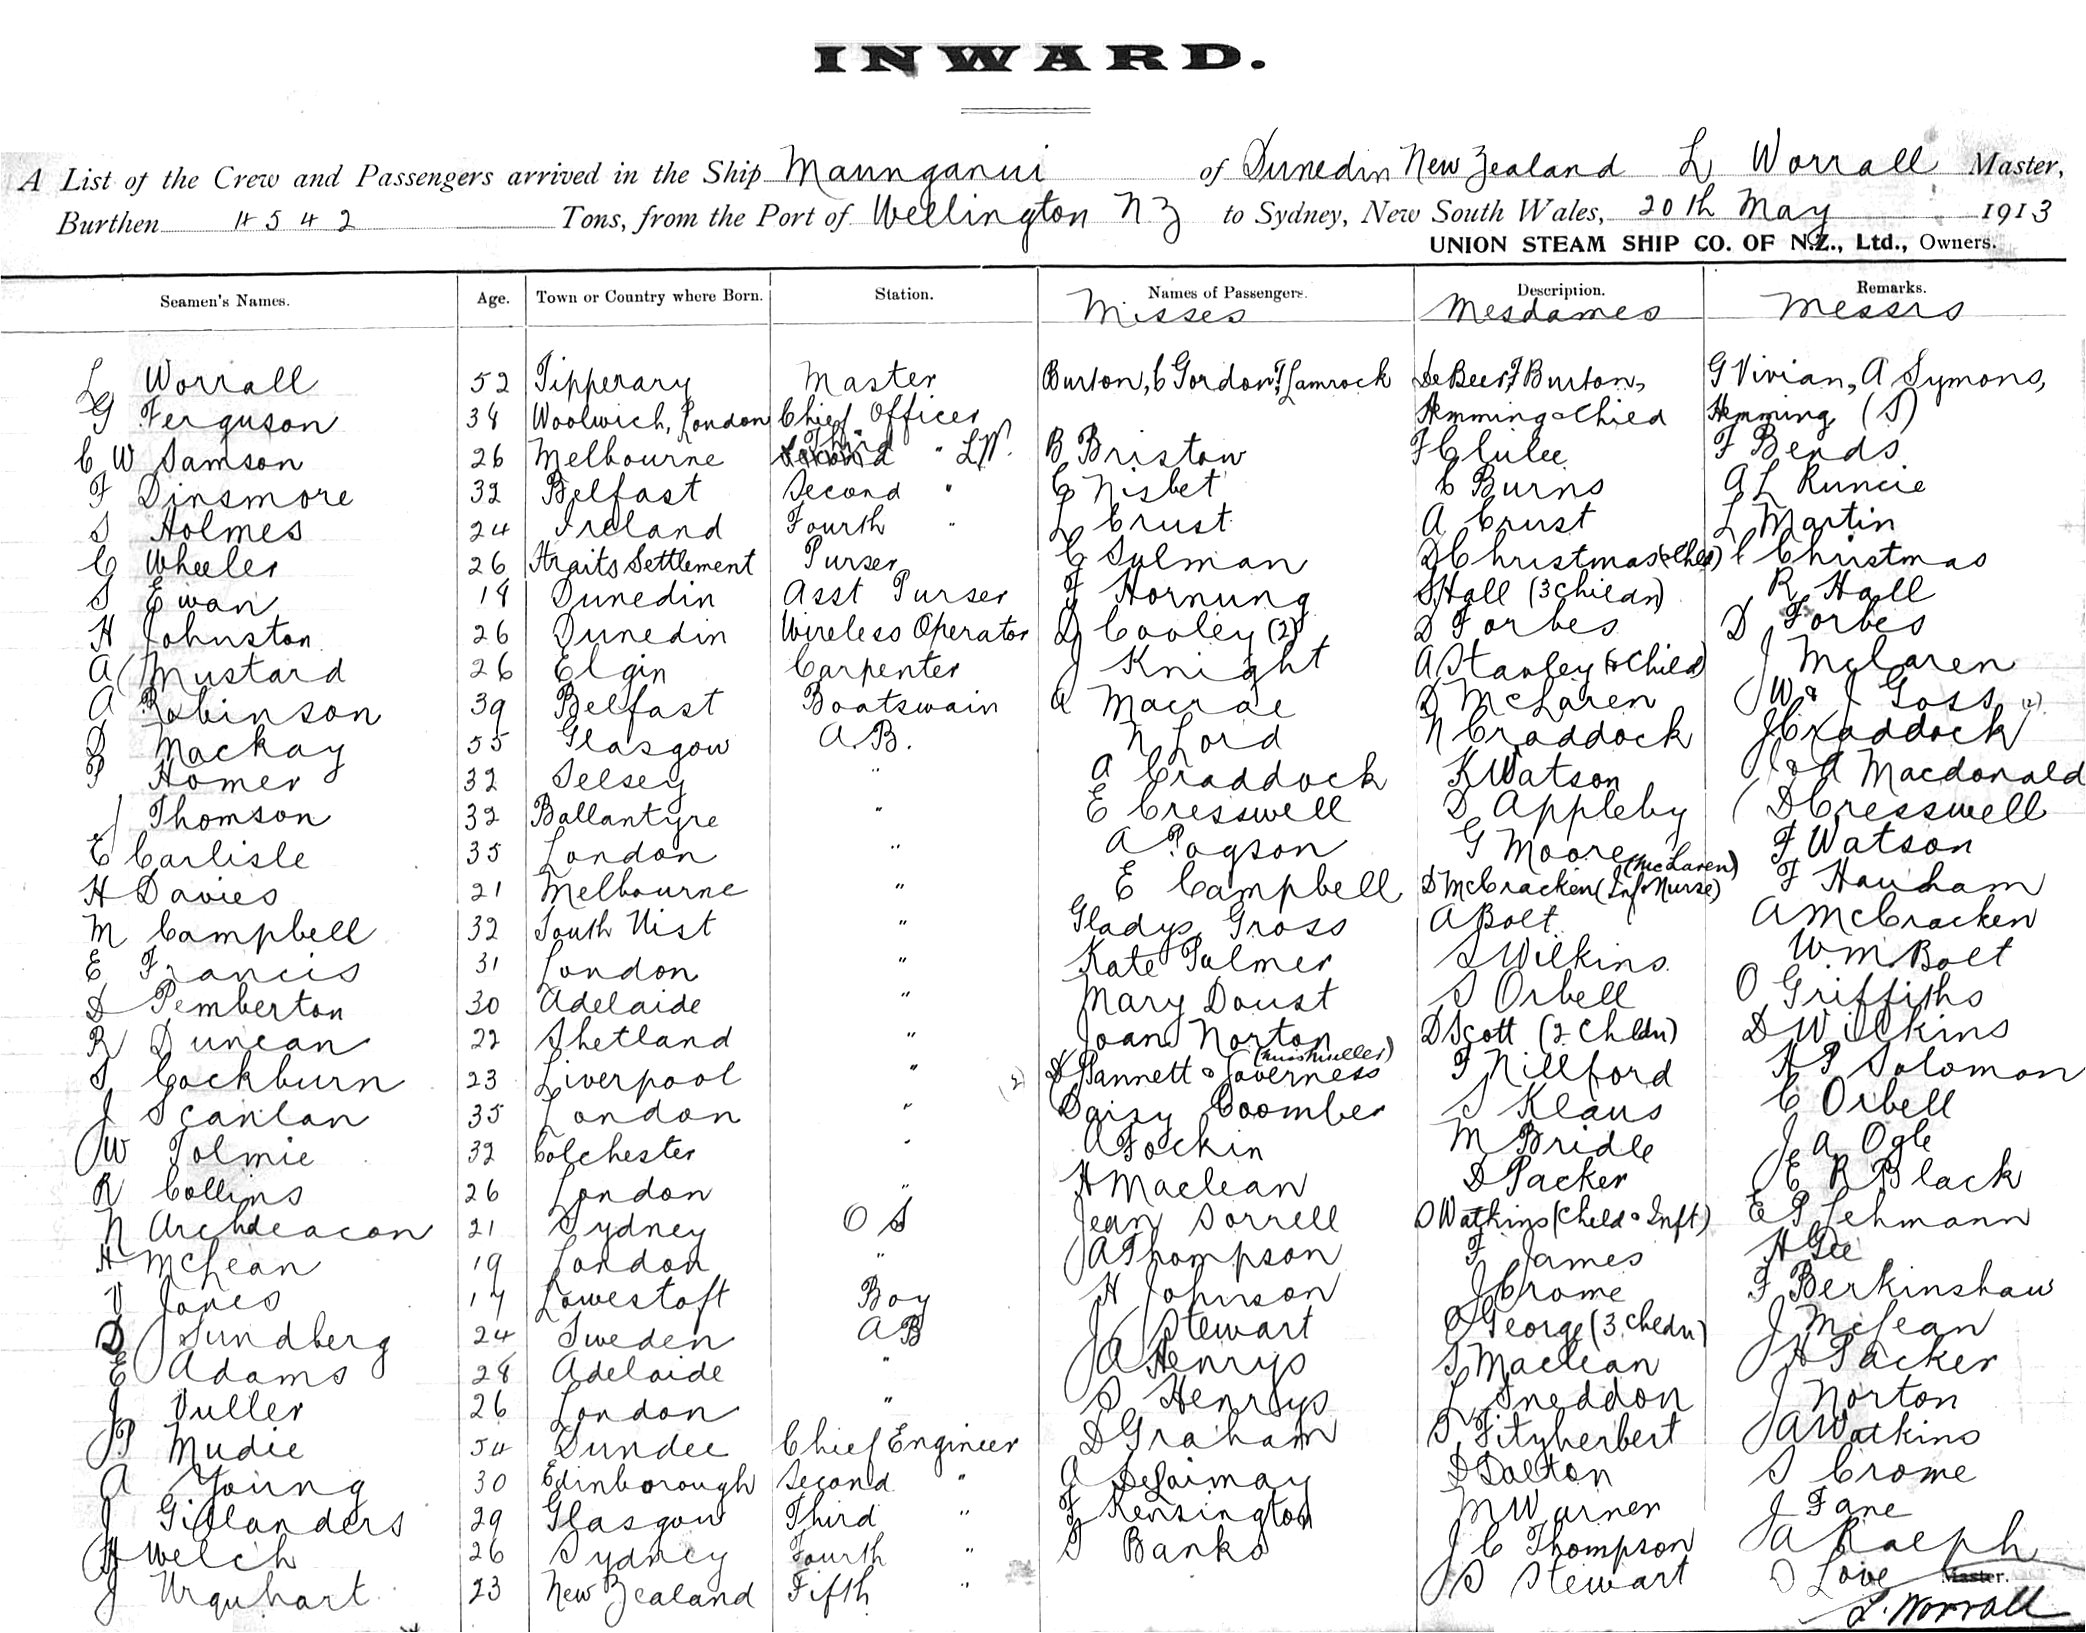 INWARD.
A List of the Crew and Passengers arrived in the Ship Maunganui of Dunedin New Zealand L Worrall Master,
Burthen 4542 Tons, from the Port of Wellington NZ to Sydney, New South Wales, 20th May 1913
UNION STEAM SHIP CO. OF N.Z., Ltd., Owners.
Seamen's Names. Age. Town or Country where Born. Station. Names of Passengers. Description. Remarks.
Misses Mesdames Messrs
L Worrall 52 Tipperary Master Burton, C Gordon, T Lamrock De Beer, F Burton, G Vivian, A Symons,
G Ferguson 38 Woolwich, London Chief Officer Hemming & Child Hemming (S)
C W Samson 26 Melbourne Third " LW. B Bristow F Clulee F Bends
F Dinsmore 32 Belfast Second " E Nisbet C Burns A L Runcie
S Holmes 24 Ireland Fourth " L Crust A Crust L Martin
C Wheeler 26 Straits Settlement Purser E Salman D Christmas C Christmas
S Ewan 19 Dunedin Asst Purser F Hornung S Hall (3 Childn) R Hall
H Johnston 26 Dunedin Wireless Operator D Cooley (2) D Forbes D Forbes
A Mustard 26 Elgin Carpenter J Knight A Stanley (& Child) J McLaren
A Robinson 39 Belfast Boatswain A Macrae D McLaren W & J Goss (2)
D Mackay 55 Glasgow A.B. N Lord N Craddock J Craddock
P Homer 32 Selsey " A Craddock K Watson J & A Macdonald
J Thomson 32 Ballantyre " E Cresswell D Appleby D Cresswell
E Carlisle 35 London " A Pogson G Moore F Watson
H Davies 21 Melbourne " E Campbell D McCracken (Inf & Nurse) (McLaren) F Hanham
M Campbell 32 South Uist " Gladys Gross A Bolt A McCracken
E Francis 31 London " Kate Palmer S Wilkins W.M. Bolt
D Pemberton 30 Adelaide " Mary Doust S Orbell O Griffiths
R Duncan 22 Shetland " Joan Norton D Scott (2 Childn) D Wilkins
S Cockburn 23 Liverpool " (2) H Pannett & Governess (Miss Mueller) F Nillford H P Solomon
J Scanlan 35 London " Daisy Coomber S Klaus C Orbell
W Tolmie 32 Colchester " A Fockin M Bridle J A Ogle
R Collins 26 London " H Maclean D Packer E R Black
N Archdeacon 21 Sydney O S Jean Sorrell O Watkins (Child & Inft) E P Lehmann
H McLean 19 London " A Thompson F James H Gee
V Jones 17 Lowestoft Boy H Johnson J Crome F Berkinshaw
D Sundberg 24 Sweden AB J Stewart O George (3 Childn) J McLean
E Adams 28 Adelaide " A Henrys S Maclean H Packer
J Vuller 26 London " S Henrys L Sneddon J Norton
P Mudie 54 Dundee Chief Engineer D Graham S Fitzherbert A Watkins
A Young 30 Edinborough Second " A D Dalton S Crome
J Gillanders 29 Glasgow Third " F Kensington M Warner J Fane
H Welch 26 Sydney Fourth " S Banks J C Thompson A Ralph
J Urquhart 23 New Zealand Fifth " S Stewart O Love Master.
L. Worrall